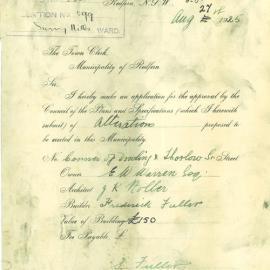 Redfern, N.S.W.
27
Aug 1925
Surry Hills WARD.
The Town Clerk,
Municipality of Redfern
Sir,
I hereby make an application for the approval by the
Council of the Plans and Specifications (which I herewith
submit) of Alteration proposed to
be erected in this Municipality.
No Corner of & Thurlow St Street
Owner E W Warren Esq,
Architect J K
Builder Frederick Fuller
Value of Building £150
Fee Payable, £
Fuller